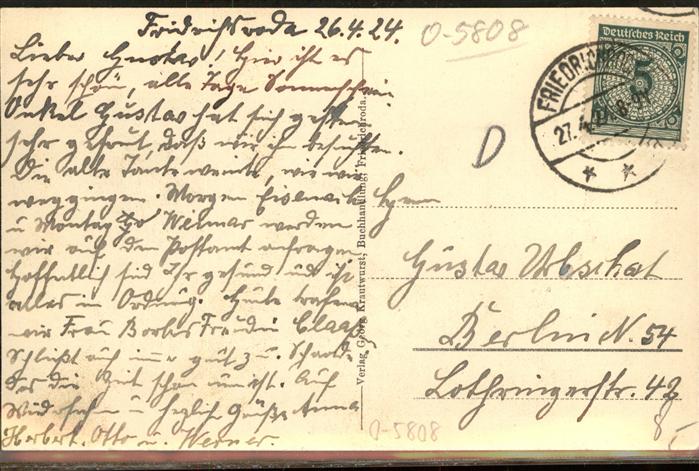 Fridrichsroda 26.4.24.
Lieber Gustav! Hier ist es
sehr schön, alle Tage Sonnenschein.
Onkel Gustav hat sich gestern
sehr gefreut, daß wir ihn besuchten.
Die alte Tante weinte, wie wir
weggingen. Morgen Eisenach
u Montag Weimar werden
wir auf dem Postamt anfragen
Hoffentlich seid Ihr gesund und ist
alles in Ordnung. Heute trafen
wir Frau Freundin
Schließt auch immer gut zu.
die Zeit schon Auf
Wiedersehn u herzliche Grüße Anna
Herbert, Otto u. Werner.
O-5808
D
Deutsches Reich
5
FRIEDRICHRODA
27.4.24. 8-9V
Herrn
Gustav Urbschat
Berlin N. 54
Lothringerstr. 42
8,-
O-5808
Verlag Georg Krautwurst, Buchhandlung, Friedrichroda.